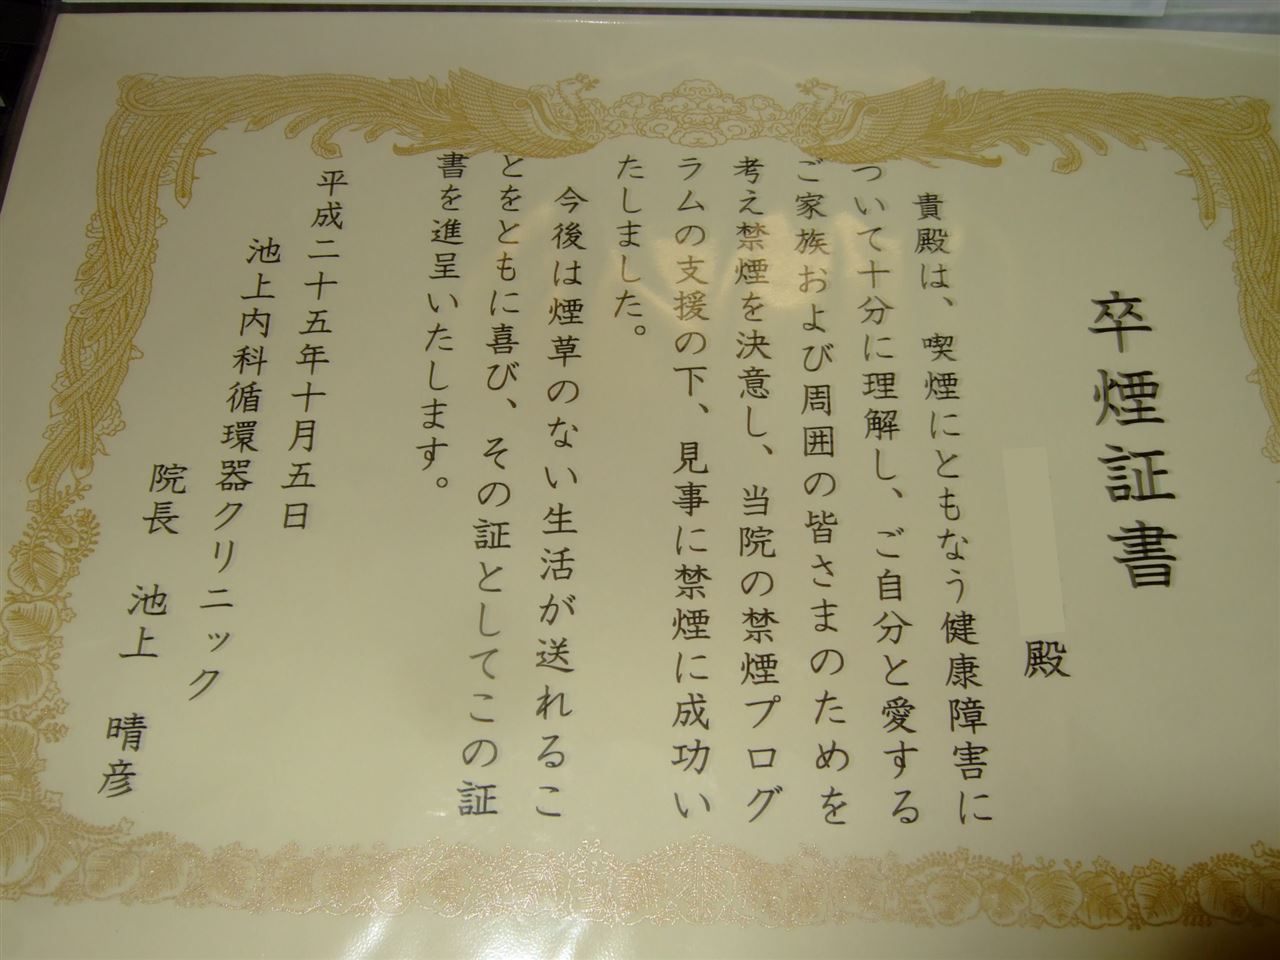 卒煙証書
殿
貴殿は、喫煙にともなう健康障害に
ついて十分に理解し、ご自分と愛する
ご家族および周囲の皆さまのためを
考え禁煙を決意し、当院の禁煙プログ
ラムの支援の下、見事に禁煙に成功い
たしました。
今後は煙草のない生活が送れるこ
とをともに喜び、その証としてこの証
書を進呈いたします。
平成二十五年十月五日
池上内科循環器クリニック
院長 池上 晴彦